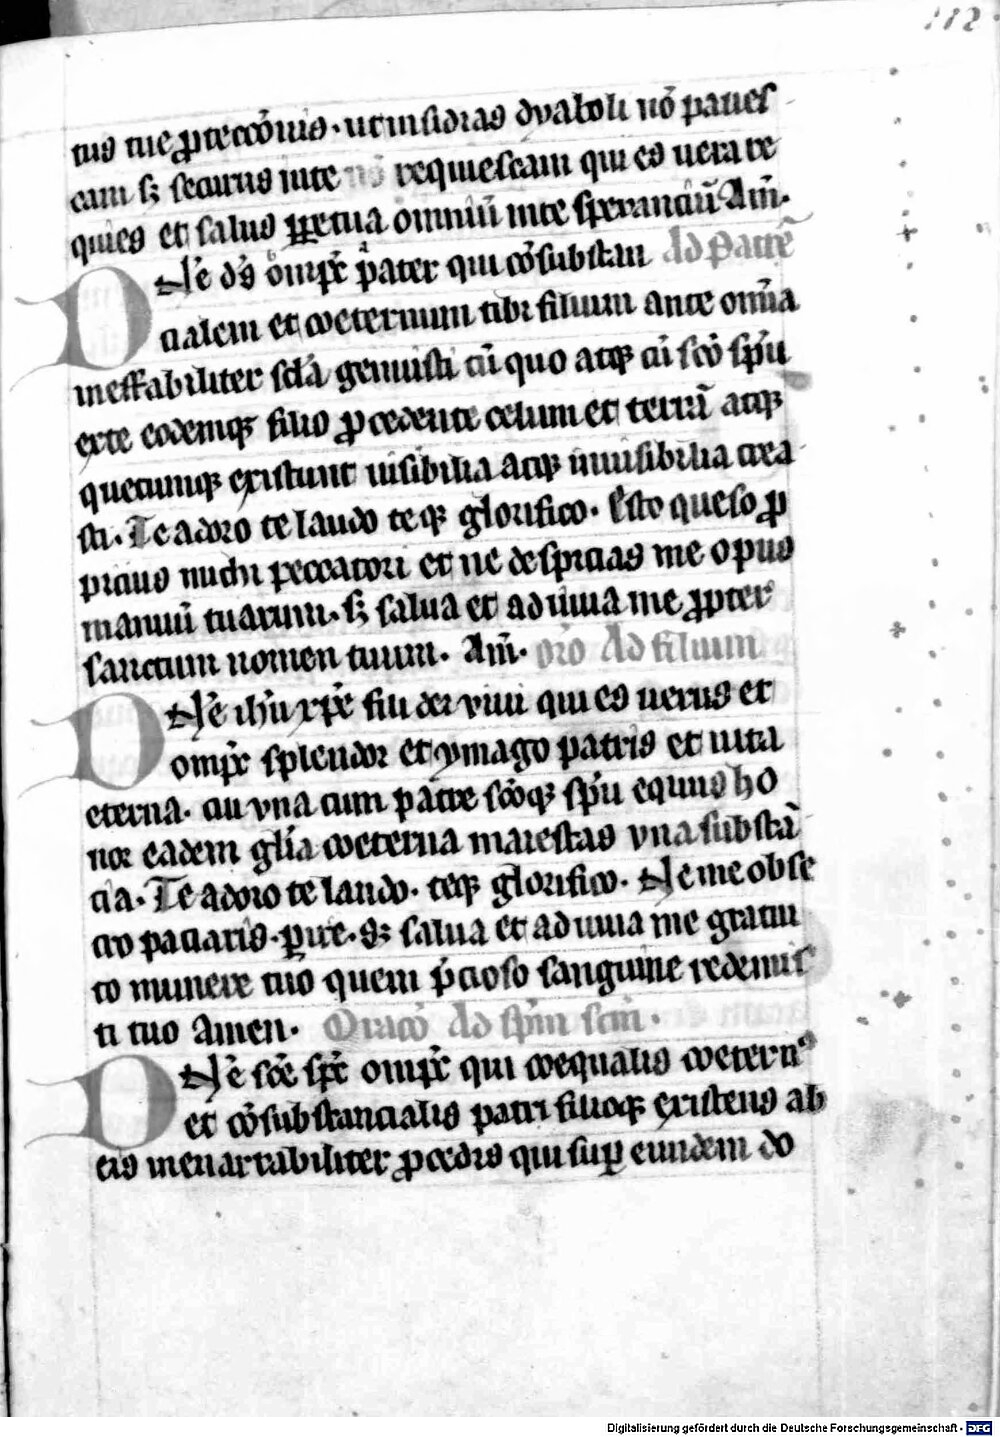 112
tus tue ꝓteccōnis · ut insidias dyaboli nō paues
cam sꝫ securus in te requiescam qui es uera re
quies et salus ꝑpetua omniū in te sperantiū Am̄.
Dn̄e ds̄ om̄ps pater qui cōsubstan Ad patrē
cialem et coeternum tibi filium ante om̄ia
ineffabiliter scl̄a genuisti cū quo atqꝫ cū sc̄o sp̄u
ex te eodemqꝫ filio ꝓcedente celum et terrā atqꝫ
quecumqꝫ existunt uisibilia atqꝫ inuisibilia crea
sti. Te adoro te laudo teqꝫ glorifico. Esto queso ꝓ
picius michi peccatori et ne despicias me opus
manuū tuarum. sꝫ salua et adiuua me ꝓpter
sanctum nomen tuum. Am̄. or̄o Ad filium
Dn̄e ih̄u xp̄e fili dei viui qui es uerus et
om̄ps splendor et ymago patris et uita
eterna. cui vna cum patre sc̄oqꝫ sp̄u equus ho
nor eadem gl̄ia coeterna maiestas vna substā
cia. Te adoro te laudo. teqꝫ glorifico. Ne me obse
cro paciaris ꝑire. sꝫ salua et adiuua me gratui
to munere tuo quem p̄cioso sanguine redemis
ti tuo Amen. Oracō Ad sp̄m sc̄m.
Dn̄e sc̄e sp̄c om̄ps qui coequalis coeternꝰ
et cōsubstancialis patri filioqꝫ existens ab
eis inenarrabiliter ꝓcedis qui suꝑ eundem do
Digitalisierung gefördert durch die Deutsche Forschungsgemeinschaft - DFG